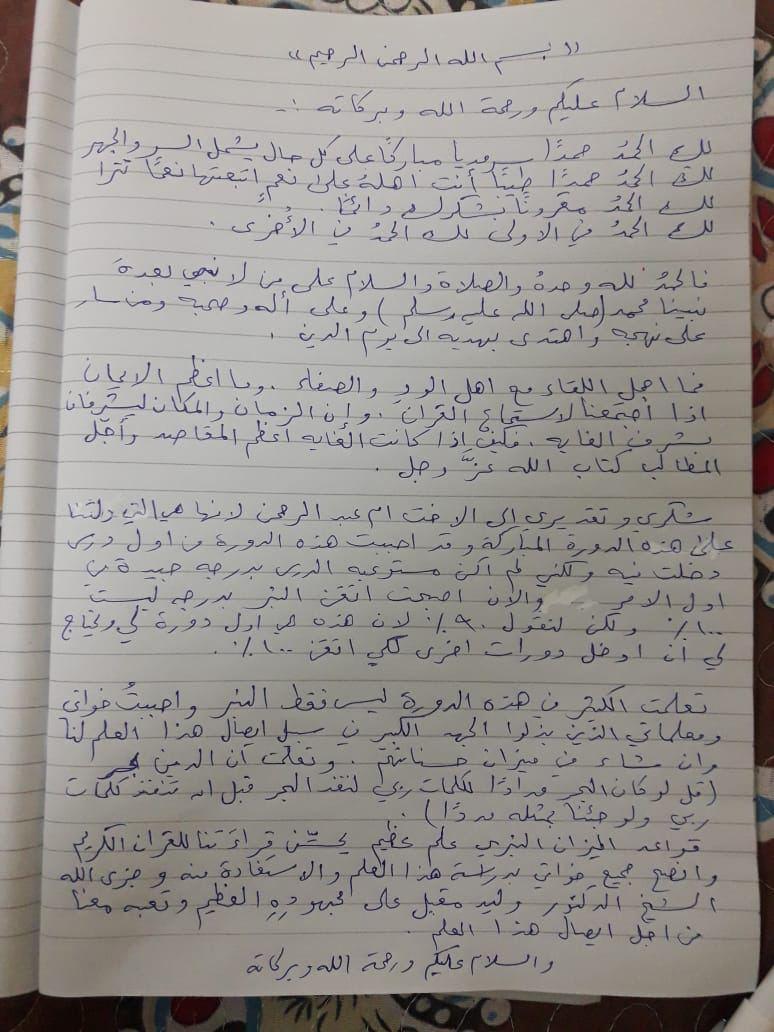 « بسم الله الرحمن الرحيم »
السلام عليكم ورحمة الله وبركاته :-
لك الحمدُ حمدًا سرمديا مباركًا على كل حال يشمل السر والجهر
لك الحمدُ حمدًا طيبًا أنت اهلهُ على نعمٍ اتبعتها نعمًا تترا
لك الحمدُ مقرونًا بشكرك دائمًا .
لك الحمدُ في الاولى لك الحمدُ في الأُخرى .
فالحمدُ لله وحدهُ والصلاة والسلام على من لا نبي بعدهَ
نبينا محمد (صلى الله عليه وسلم) وعلى أله وصحبه ومن سار
على نهجه واهتدى بهديه الى يوم الدين .
فما اجمل اللقاء مع اهل الود والصفاء . وما اعظم الايمان
اذا اجتمعنا لاستماع القران . وإن الزمان والمكان ليشرفان
بشرف الغايه . فكيف إذا كانت الغايه أعظم المقاصد وأجّل
المطالب كتاب الله عزَّ وجل .
شكري وتقديري الى الاخت ام عبد الرحمن لانها هي التي دلتنا
على هذه الدورة المباركة وقد احببت هذه الدورة من اول درس
دخلت فيه ولكني لم اكن مستوعبه الدرس بدرجه جيدة في
اول الامر والان اصبحت اتقن النبر بدرجه ليست
١٠٠٪ ولكن لنقول ٩٠٪ لان هذه هي اول دورة لي ونحتاج
لي أن ادخل دورات اخرى لكي اتقن ١٠٠٪ .
تعلمت الكثير في هذه الدورة ليس فقط النبر واحببتُ خواتي
ومعلماتي الذين بذلوا الجهد الكبير في سبيل ايصال هذا العلم لنا
وان شاء في ميزان حسناتهم . وتعلمت أن الدين
(قل لو كان البحر مدادًا لكلمات ربي لنفد البحر قبل ان تنفذ كلمات
ربي ولو جئنا بمثله مددًا) .
قواعد الميزان النبري علم عظيم يحسّن قراءَتنا للقران الكريم
وانصح جميع خواتي بدراسة هذا العلم والاستفادة منه وجزى الله
الشيخ الدكتور وليد مقبل على مجهودِهِ العظيم وتعبه معنا
من اجل ايصال هذا العلم .
والسلام عليكم ورحمة الله وبركاته